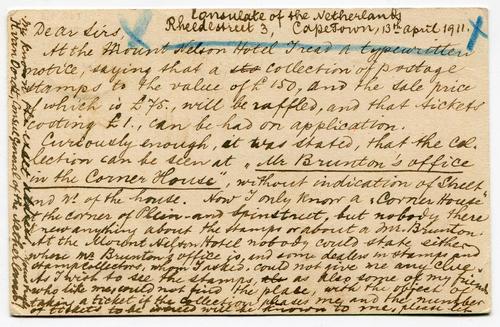 Consulate of the Netherlands
Rheedestreet 3, CapeTown, 13th april 1911.
Dear Sirs,
At the Mount Nelson Hotel I read a typewritten
notice, saying that a collection of postage
stamps to the value of £150, and the sale price
of which is £75, will be raffled, and that tickets
costing £1., can be had on application.
Curiously enough, it was stated, that the col-
lection can be seen at "Mr Brunton's office
in the Corner House", without indication of Street
and No. of the house. Now I only know a "Corner House"
at the corner of Plein- and Spinstreet, but nobody there
knew anything about the stamps or about a Mr. Brunton.
At the Mount Nelson Hotel nobody could state, either
where Mr Brunton's office is, and some dealers in stamps and
stampcollectors, whom I asked, could not give me any clue.
As I wish to see the stamps, as also some of my friends
who like me, could not find the place, with the object of
taking a ticket if the collection pleases me, and the number
of tickets to be issued will be known to me, please let
My
Consul General of the Netherlands